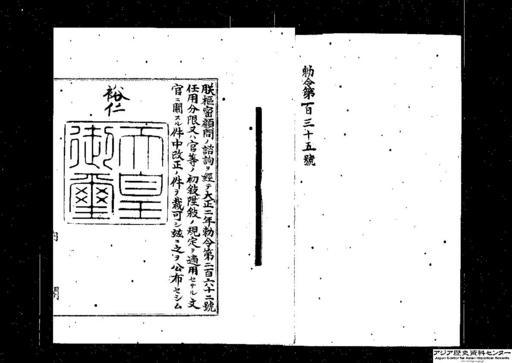 勅令第百三十五號
朕樞密顧問ノ諮詢ヲ經テ大正二年勅令第二百六十二號
任用分限又ハ官等ノ初敍陞敍ノ規定ヲ適用セサル文
官ニ關スル件中改正ノ件ヲ裁可シ茲ニ之ヲ公布セシム
裕仁
天皇
御璽
内閣
アジア歴史資料センター
Japan Center for Asian Historical Records